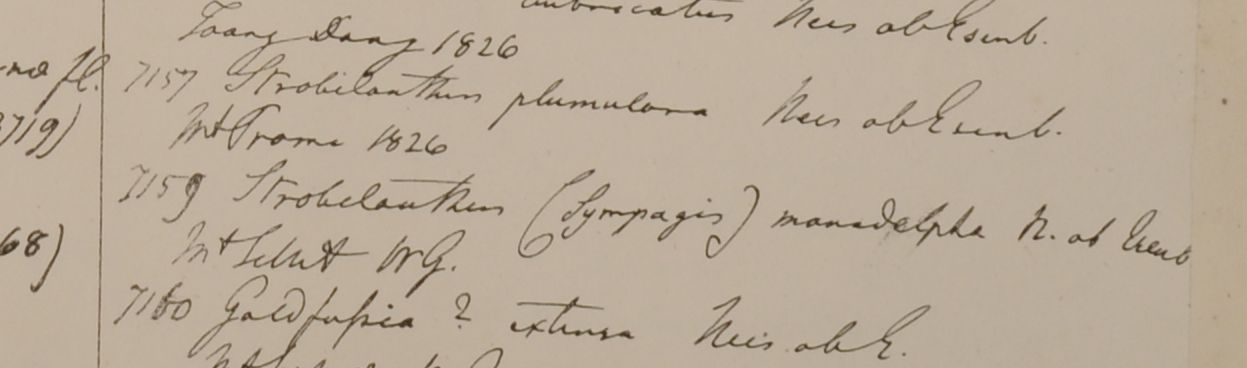 imbricatus Nees ab Esenb.
Toang Dong 1826
-na fl. 7157 Strobilanthus plumulosa Nees ab Esenb.
3719) Mt Prome 1826
7159 Strobelanthus (Sympagis) monadelpha N. ab Esenb
68) Mt Sillet WG.
7160 Goldfussia ? extensa Nees ab E.